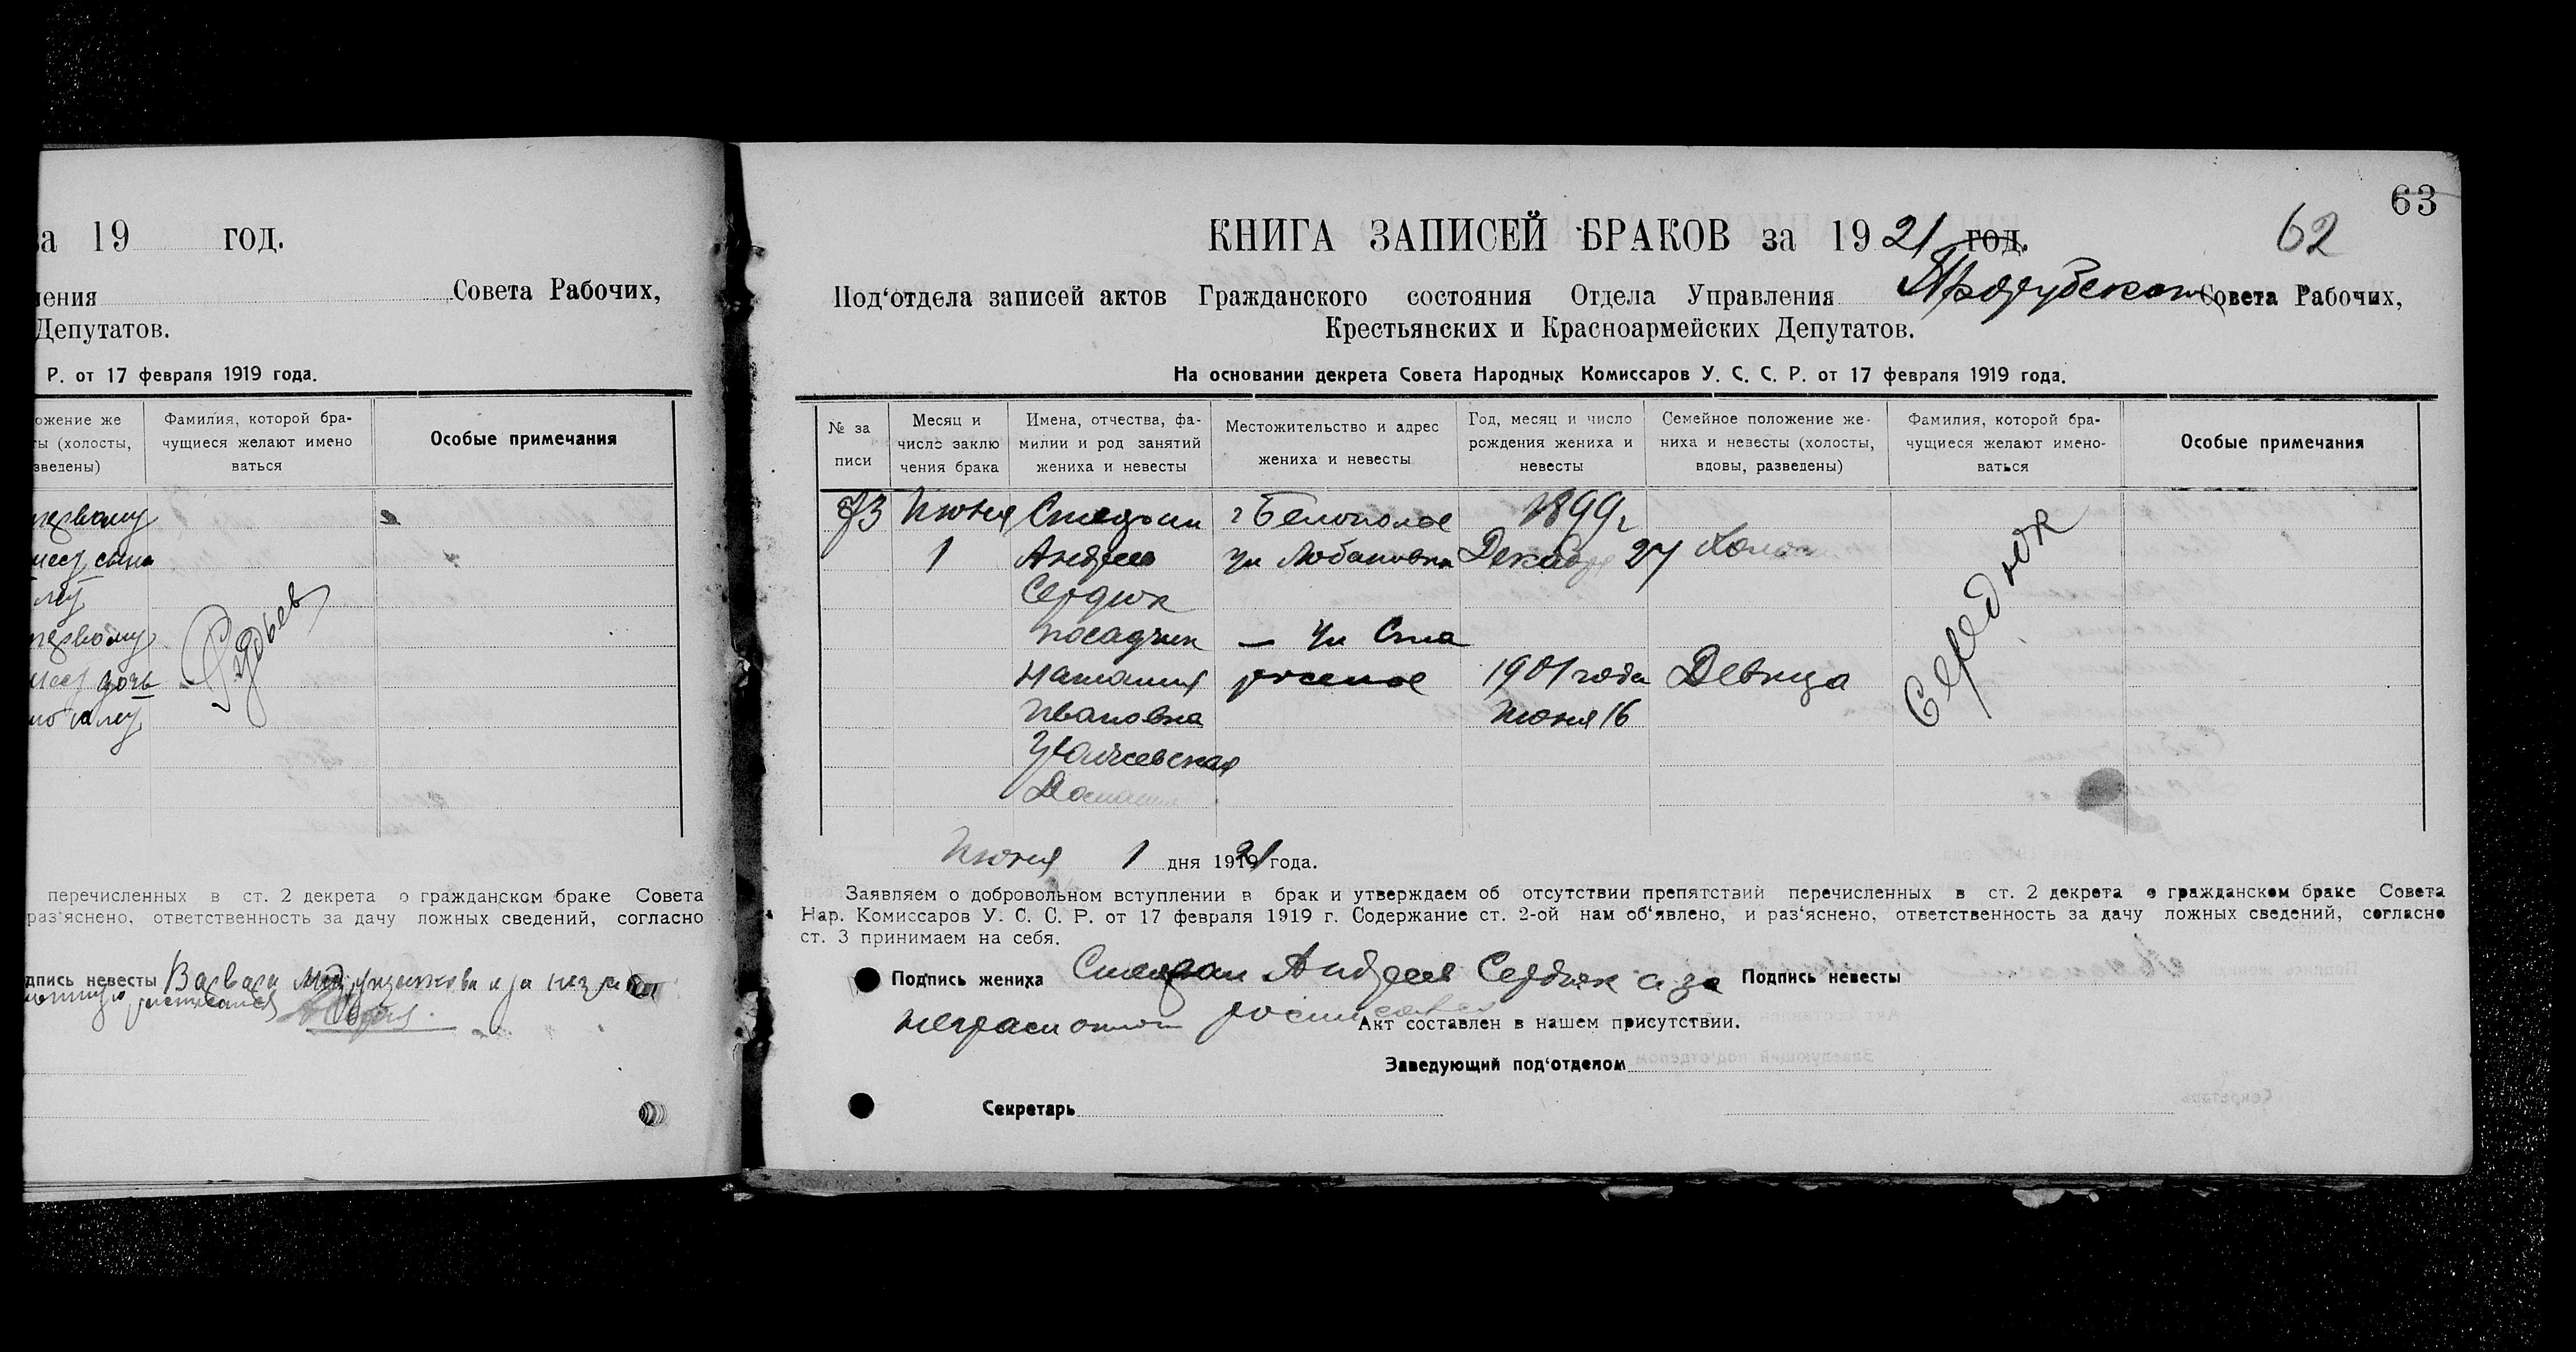 за 19 год.
ления Совета Рабочих,
Депутатов.
Р. от 17 февраля 1919 года.
ожение же
ты (холосты,
зведены)
Фамилия, которой бра-
чущиеся желают имено
ваться
Особые примечания
первому
сына
первому
дочь
перечисленных в ст. 2 декрета о гражданском браке Совета
раз‘яснено, ответственность за дачу ложных сведений, согласно
дпись невесты Варвара
63
62
КНИГА ЗАПИСЕЙ БРАКОВ за 1921 год.
Под‘отдела записей актов Гражданского состояния Отдела Управления Совета Рабочих,
Крестьянских и Красноармейских Депутатов.
На основании декрета Совета Народных Комиссаров У. С. С. Р. от 17 февраля 1919 года.
№ за
писи
Месяц и
число заклю
чения брака
Имена, отчества, фа-
милии и род занятий
жениха и невесты
Местожительство и адрес
жениха и невесты
Год, месяц и число
рождения жениха и
невесты
Семейное положение же-
ниха и невесты (холосты,
вдовы, разведены)
Фамилия, которой бра-
чущиеся желают имено-
ваться
Особые примечания
73 Июня г Белополье 1899 г
1 Андреев ул Лобановка Декабря 27 Холост
Сердюк
— ул Ста
Наталия роселье 1901 года Девица
Ивановна Июня 16
Середюк
Июня 1 дня 1921 года.
Заявляем о добровольном вступлении в брак и утверждаем об отсутствии препятствий перечисленных в ст. 2 декрета о гражданском браке Совета
Нар. Комиссаров У. С. С. Р. от 17 февраля 1919 г. Содержание ст. 2-ой нам об‘явлено, и раз‘яснено, ответственность за дачу ложных сведений, согласно
ст. 3 принимаем на себя.
Подпись жениха Андреев Сердюк а за Подпись невесты
Акт составлен в нашем присутствии.
Заведующий под‘отделом
Секретарь